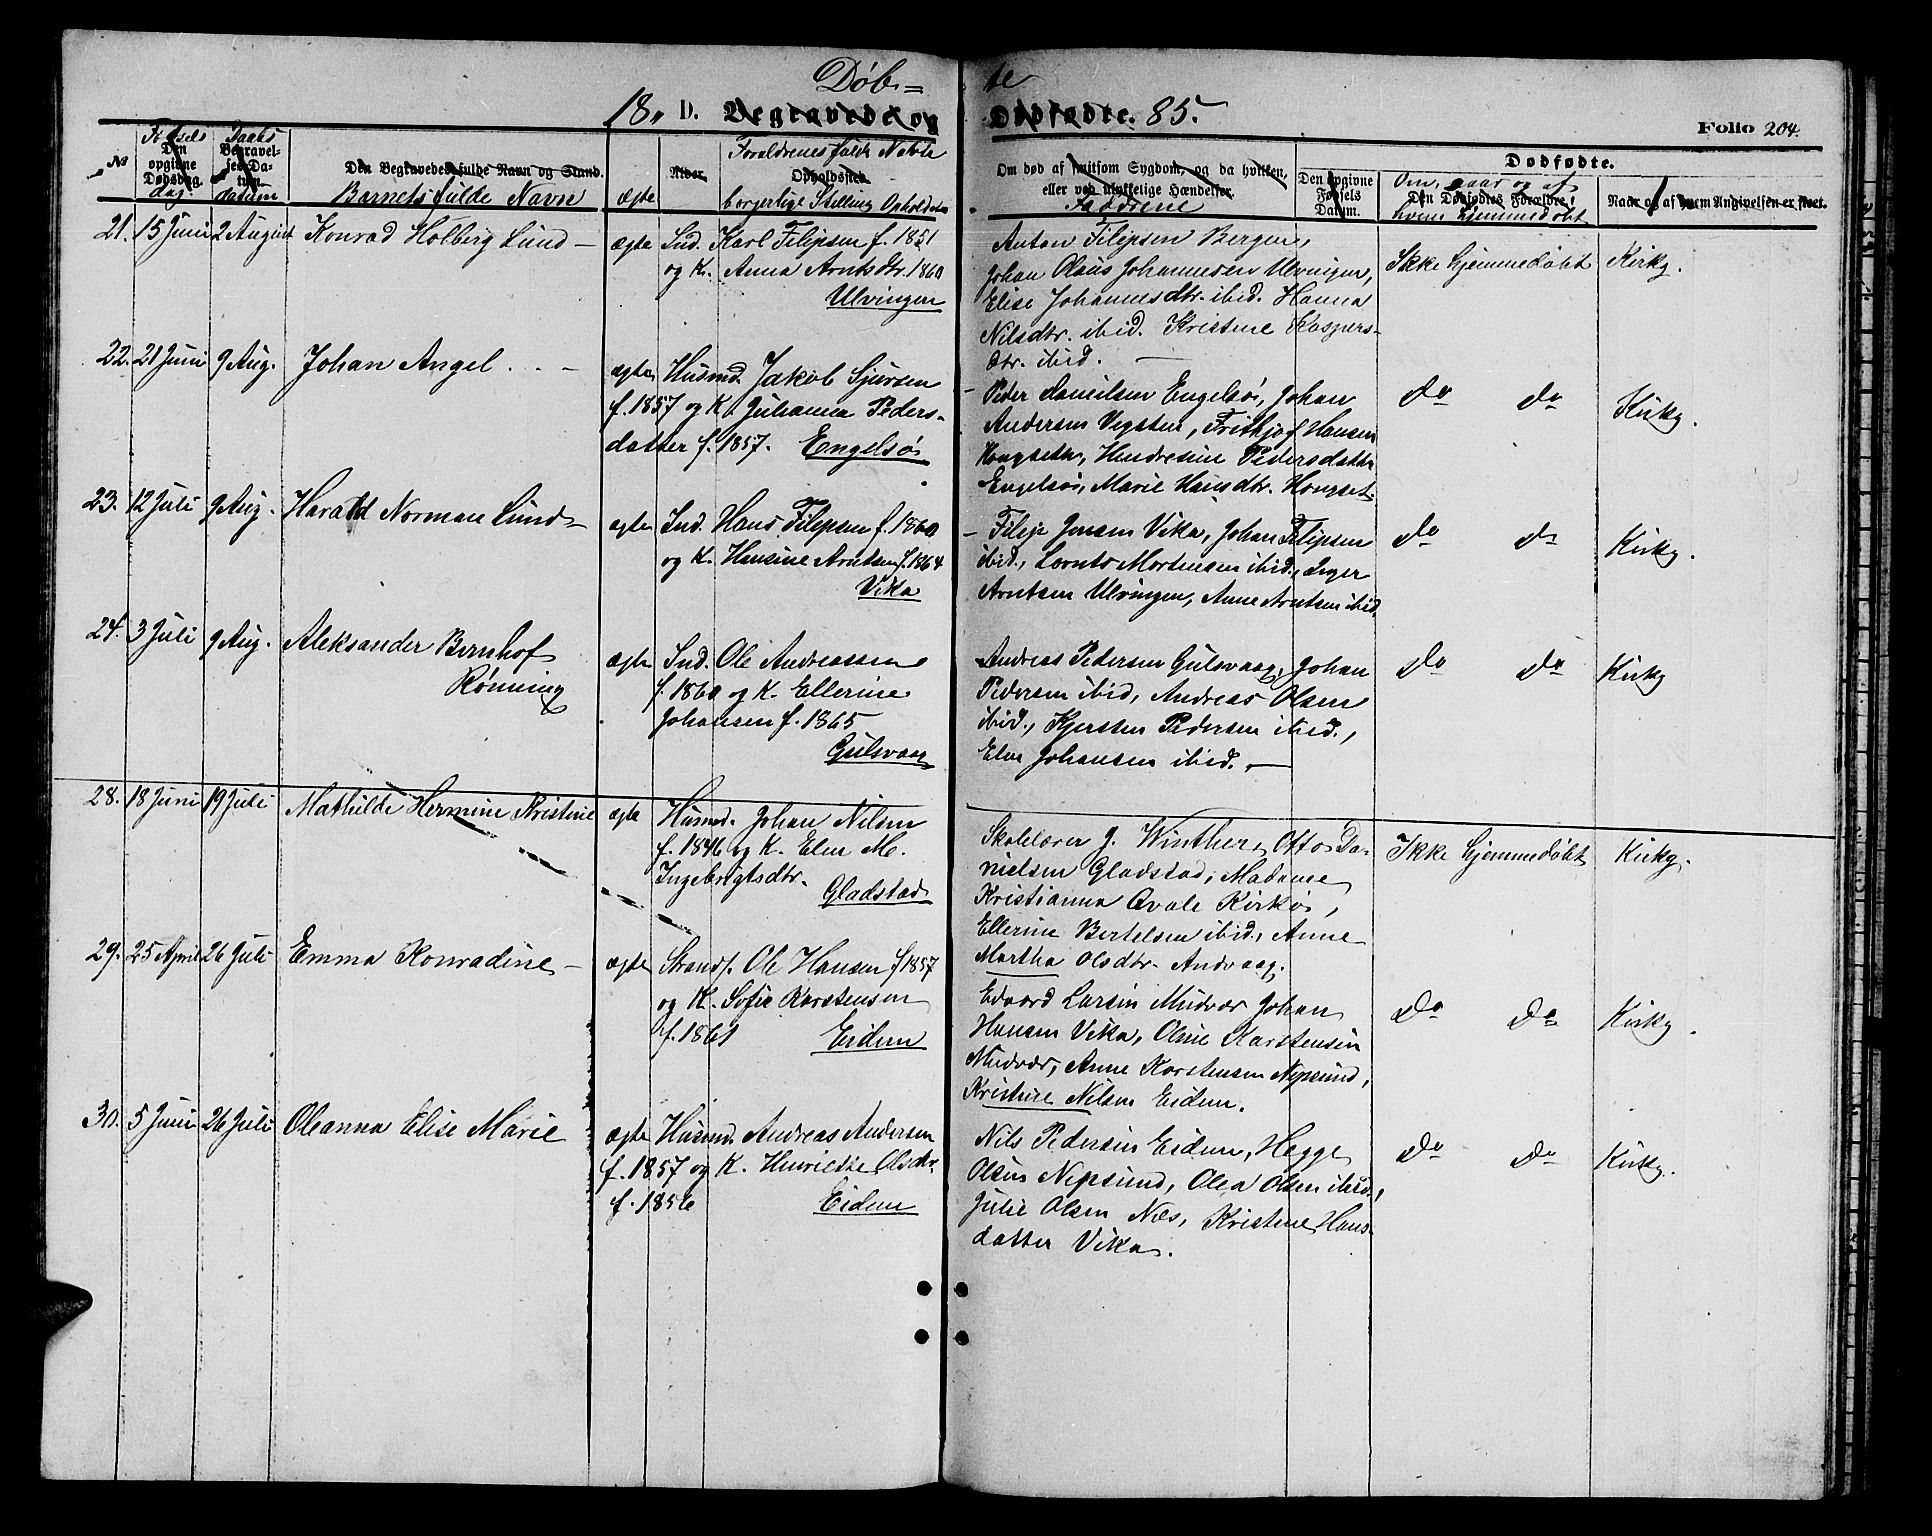 Døb= te
18 D. Begravede og Dødfødte. 85.
Folio 204.
No
Fødsels Den opgivne Dødsdag. dag.
Daabs Begravelses Datum. datum
Den Begravedes fulde Navn og Stand.
Barnets fulde Navn
ægte
Alder.
Forældrenes fulde Navn
Opholdssted.
borgerlige Stilling Opholdsted
Om død af smitsom Sygdom, og da hvilken,
eller ved ulykkelige Hændelser.
Faddrene
Den opgivne Fødsels Datum.
Dødfødte.
Om, naar og af
Den Dødfødtes Forældre.
hvem hjemmedøbt
Naar og af hvem Angivelsen er skeet.
21. 15 Juni 2 August Konrad Holberg Lund — ægte Ind. Karl Filipsen f. 1851
og K. Anna Arntsdtr. 1860
Ulvingen
Anton Filipsen Bergen,
Johan Olaus Johannesen Ulvingen,
Elise Johannesdtr. ibid. Hanna
Nilsdtr. ibid. Kristine Kaspers-
dtr. ibid. —
Ikke hjemmedøbt Kirkg.
22. 21 Juni 9 Aug. Johan Angel . . — ægte Husmd. Jakob Sjursen
f. 1857 og K. Juhanna Peders-
datter f. 1857. Engelsø
— Peder Danielsen Engelsø, Johan
Andersen Vegsten, Frithjof Hansen
Hongseth, Hendresine Pedersdatter
Engelsø, Marie Hansdtr. Hongset.
do do Kirkg.
23. 12 Juli 9 Aug. Harald Norman Lund — ægte Ind. Hans Filipsen f. 1860
og K. Hansine Arntsen f. 1864
Vika
— Filip Jensen Vika, Johan Filipsen
ibid., Lornts Mortensen ibid., Inger
Arntsen Ulvingen, Anne Arntsen ibid.
do do Kirkg.
24. 3 Juli 9 Aug. Aleksander Bernhof
Rønning
ægte Ind. Ole Andreassen
f. 1860 og K. Ellerine
Johansen f. 1865
Gulsvaag
Andreas Pedersen Gulsvaag, Johan
Pedersen ibid, Andreas Olsen
ibid., Kjersten Pedersen ibid.,
Elen Johansen ibid. —
do do Kirkg
28. 18 Juni 19 Juli Mathilde Hermine Kristine ægte Husmd. Johan Nilsen
f. 1846 og K. Elen M.
Ingebrigtsdtr.
Gladstad
Skolelærer J. Winther, Otto Da-
nielsen Gladstad, Madame
Kristianna Qvale Kirkø,
Ellerine Bertelsen ibid., Anne
Martha Olsdtr. Andvaag.
Ikke hjemmedøbt Kirkg.
29. 25 April 26 Juli Emma Konradine — ægte Strands. Ole Hansen f 1857
og K. Sofie Karstensen
f. 1861 Eidem
Edvard Larsen Mudvær Johan
Hansen Vika, Oline Karstensen
Mudvær, Anne Karstensen Nepsund,
Kristine Nilsen Eidem.
do do Kirkg.
30. 5 Juni 26 Juli Oleanna Elise Marie ægte Husmd. Andreas Andersen
f. 1857 og K. Henriette Olsdtr.
f. 1856 Eidem
Nils Pedersen Eidem, Hegge
Olsen Nepsund, Olea Olsen ibid.,
Julie Olsen Næs, Kristine Hans-
datter Vika.
do do Kirkg.